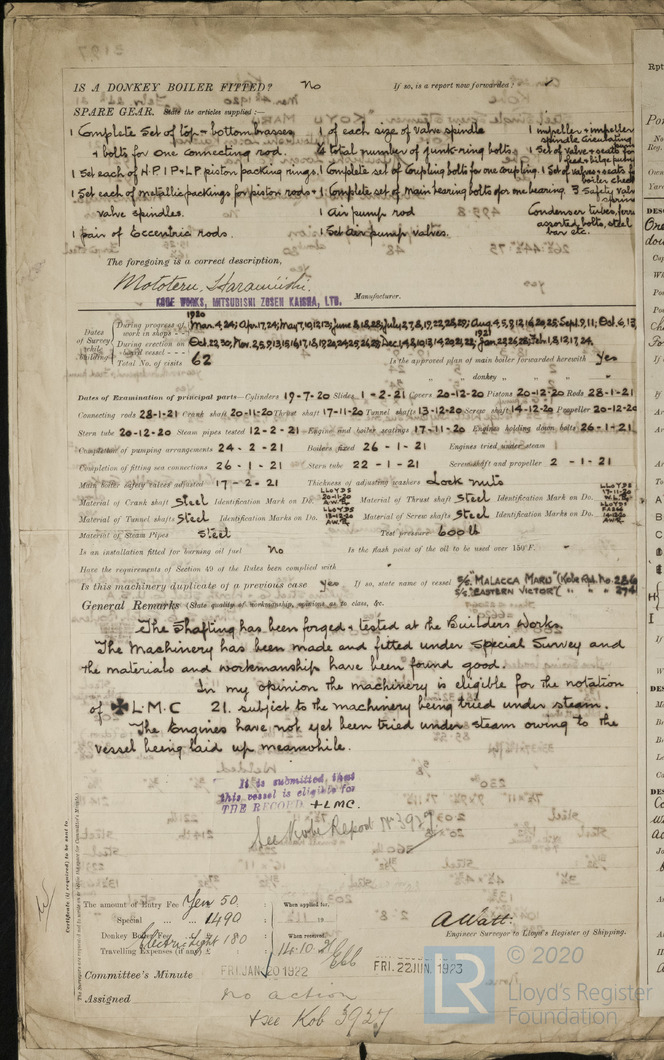 IS A DONKEY BOILER FITTED? No If so, is a report now forwarded?
SPARE GEAR. State the articles supplied:—
1 Complete Set of top + bottom brasses 1 of each size of valve spindle 1 impeller + impeller
spindle circulating
+ bolts for one connecting rod. 4 total number of junk-ring bolts 1 Set of valves + seats for
feed + bilge pump
1 Set each of H.P I.P + L.P piston packing rings. 1 Complete set of Coupling bolts for one coupling. 1 Set of valves + seats
boiler check
1 Set each of metallic packings for piston rods + 1 Complete set of main bearing bolts for one bearing. 3 Safety valve
spring
valve spindles. 1 Air pump rod Condenser tubes,
1 pair of Eccentric rods. 1 Set Air pump valves. assorted bolts, steel
bar etc.
The foregoing is a correct description,
KOBE WORKS, MITSUBISHI ZOSEN KAISHA, LTD. Manufacturer.
Dates of Survey while building
1920
During progress of work in shops - - Mar. 4, 24; Apr. 17, 24; May 7, 10, 12, 13; June 8, 18, 28; July 27, 8, 19, 22, 28, 29; Aug. 4, 5, 9, 12, 16, 20, 25, Sept. 1, 9, 11; Oct. 6, 13,
1921
During erection on board vessel - - - Oct. 22, 30; Nov. 2, 5, 9, 13, 15, 16, 17, 18, 19, 20, 24, 25, 26, 29; Dec. 1, 4, 8, 10, 13, 14, 20, 21, 22; Jan. 22, 26, 28; Feb. 1, 8, 12, 17, 24.
Total No. of visits 62 Is the approved plan of main boiler forwarded herewith Yes
" " " donkey " " "
Dates of Examination of principal parts—Cylinders 19-7-20 Slides 1-2-21 Covers 20-12-20 Pistons 20-12-20 Rods 28-1-21
Connecting rods 28-1-21 Crank shaft 20-11-20 Thrust shaft 17-11-20 Tunnel shafts 13-12-20 Screw shaft 14-12-20 Propeller 20-12-20
Stern tube 20-12-20 Steam pipes tested 12-2-21 Engine and boiler seatings 17-11-20 Engines holding down bolts 26-1-21
Completion of pumping arrangements 24-2-21 Boilers fixed 26-1-21 Engines tried under steam
Completion of fitting sea connections 26-1-21 Stern tube 22-1-21 Screw shaft and propeller 2-1-21
Main boiler safety valves adjusted 17-2-21 Thickness of adjusting washers Lock nuts
Material of Crank shaft Steel Identification Mark on Do. LLOYDS 20-11-20 A.W. Material of Thrust shaft Steel Identification Mark on Do. LLOYDS 17-11-20
Material of Tunnel shafts Steel Identification Marks on Do. LLOYDS 13-12-20 A.W. Material of Screw shafts Steel Identification Marks on Do. LLOYDS 14-12-20 A.W.
Material of Steam Pipes Steel Test pressure 600 lb
Is an installation fitted for burning oil fuel No Is the flash point of the oil to be used over 150°F. "
Have the requirements of Section 49 of the Rules been complied with "
Is this machinery duplicate of a previous case Yes If so, state name of vessel S/S "MALACCA MARU" (Kobe Rpt. No. 286
S/S "EASTERN VICTOR" ( " " " 274
General Remarks (State quality of workmanship, opinions as to class, &c.
The Shafting has been forged + tested at the Builders Works.
The Machinery has been made and fitted under Special Survey and
the materials and workmanship have been found good.
In my opinion the machinery is eligible for the notation
of ✠ L.M.C 21. subject to the machinery being tried under steam.
The Engines have not yet been tried under steam owing to the
vessel being laid up meanwhile.
It is submitted, that
this vessel is eligible for
THE RECORD + LMC.
See Kobe Report No 3927
Certificate (if required) to be sent to
The amount of Entry Fee Yen 50 : When applied for,
Special 1490 :
Donkey Boiler Fee
Electric Light 180 : When received,
Travelling Expenses (if any) £ 14.10.21
A Watt.
Engineer Surveyor to Lloyd's Register of Shipping.
Committee's Minute FRI. JAN 20 1922 FRI. 22 JUN. 1923
Assigned no action
+ see Kob 3927
LR © 2020
Lloyd's Register
Foundation